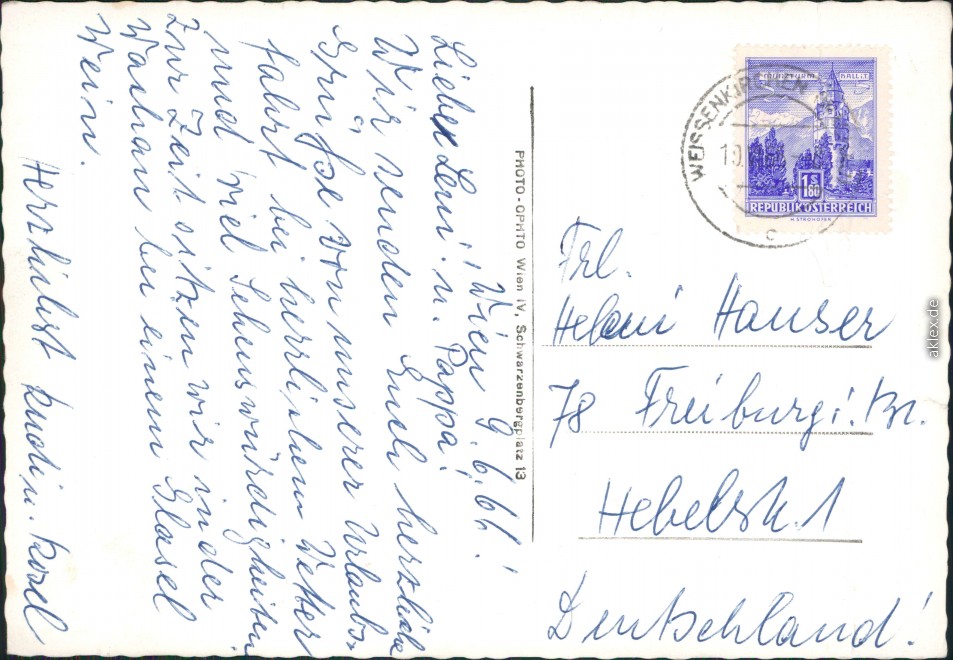 Wien 9.6.61!
Liebe Leni u. Pappa!
Wir senden Euch herzliche
Grüße von unserer Urlaubs-
fahrt bei herrlichem Wetter
und viel Sehenswürdigkeiten.
Zur Zeit sitzen wir in der
Wachau bei einem Glasel
Wein.
Herzlichst Rudi u. Rosel
PHOTO-OPHTO Wien IV, Schwarzenbergplatz 13
MÜNZTURM HALL i.T.
WEISSENKIRCHEN
10.
c
1 S 80
REPUBLIK ÖSTERREICH
H. STROHOFER
Frl.
Heleni Hauser
78 Freiburg i. Br.
Hebelstr. 1
Deutschland!
akpool.de